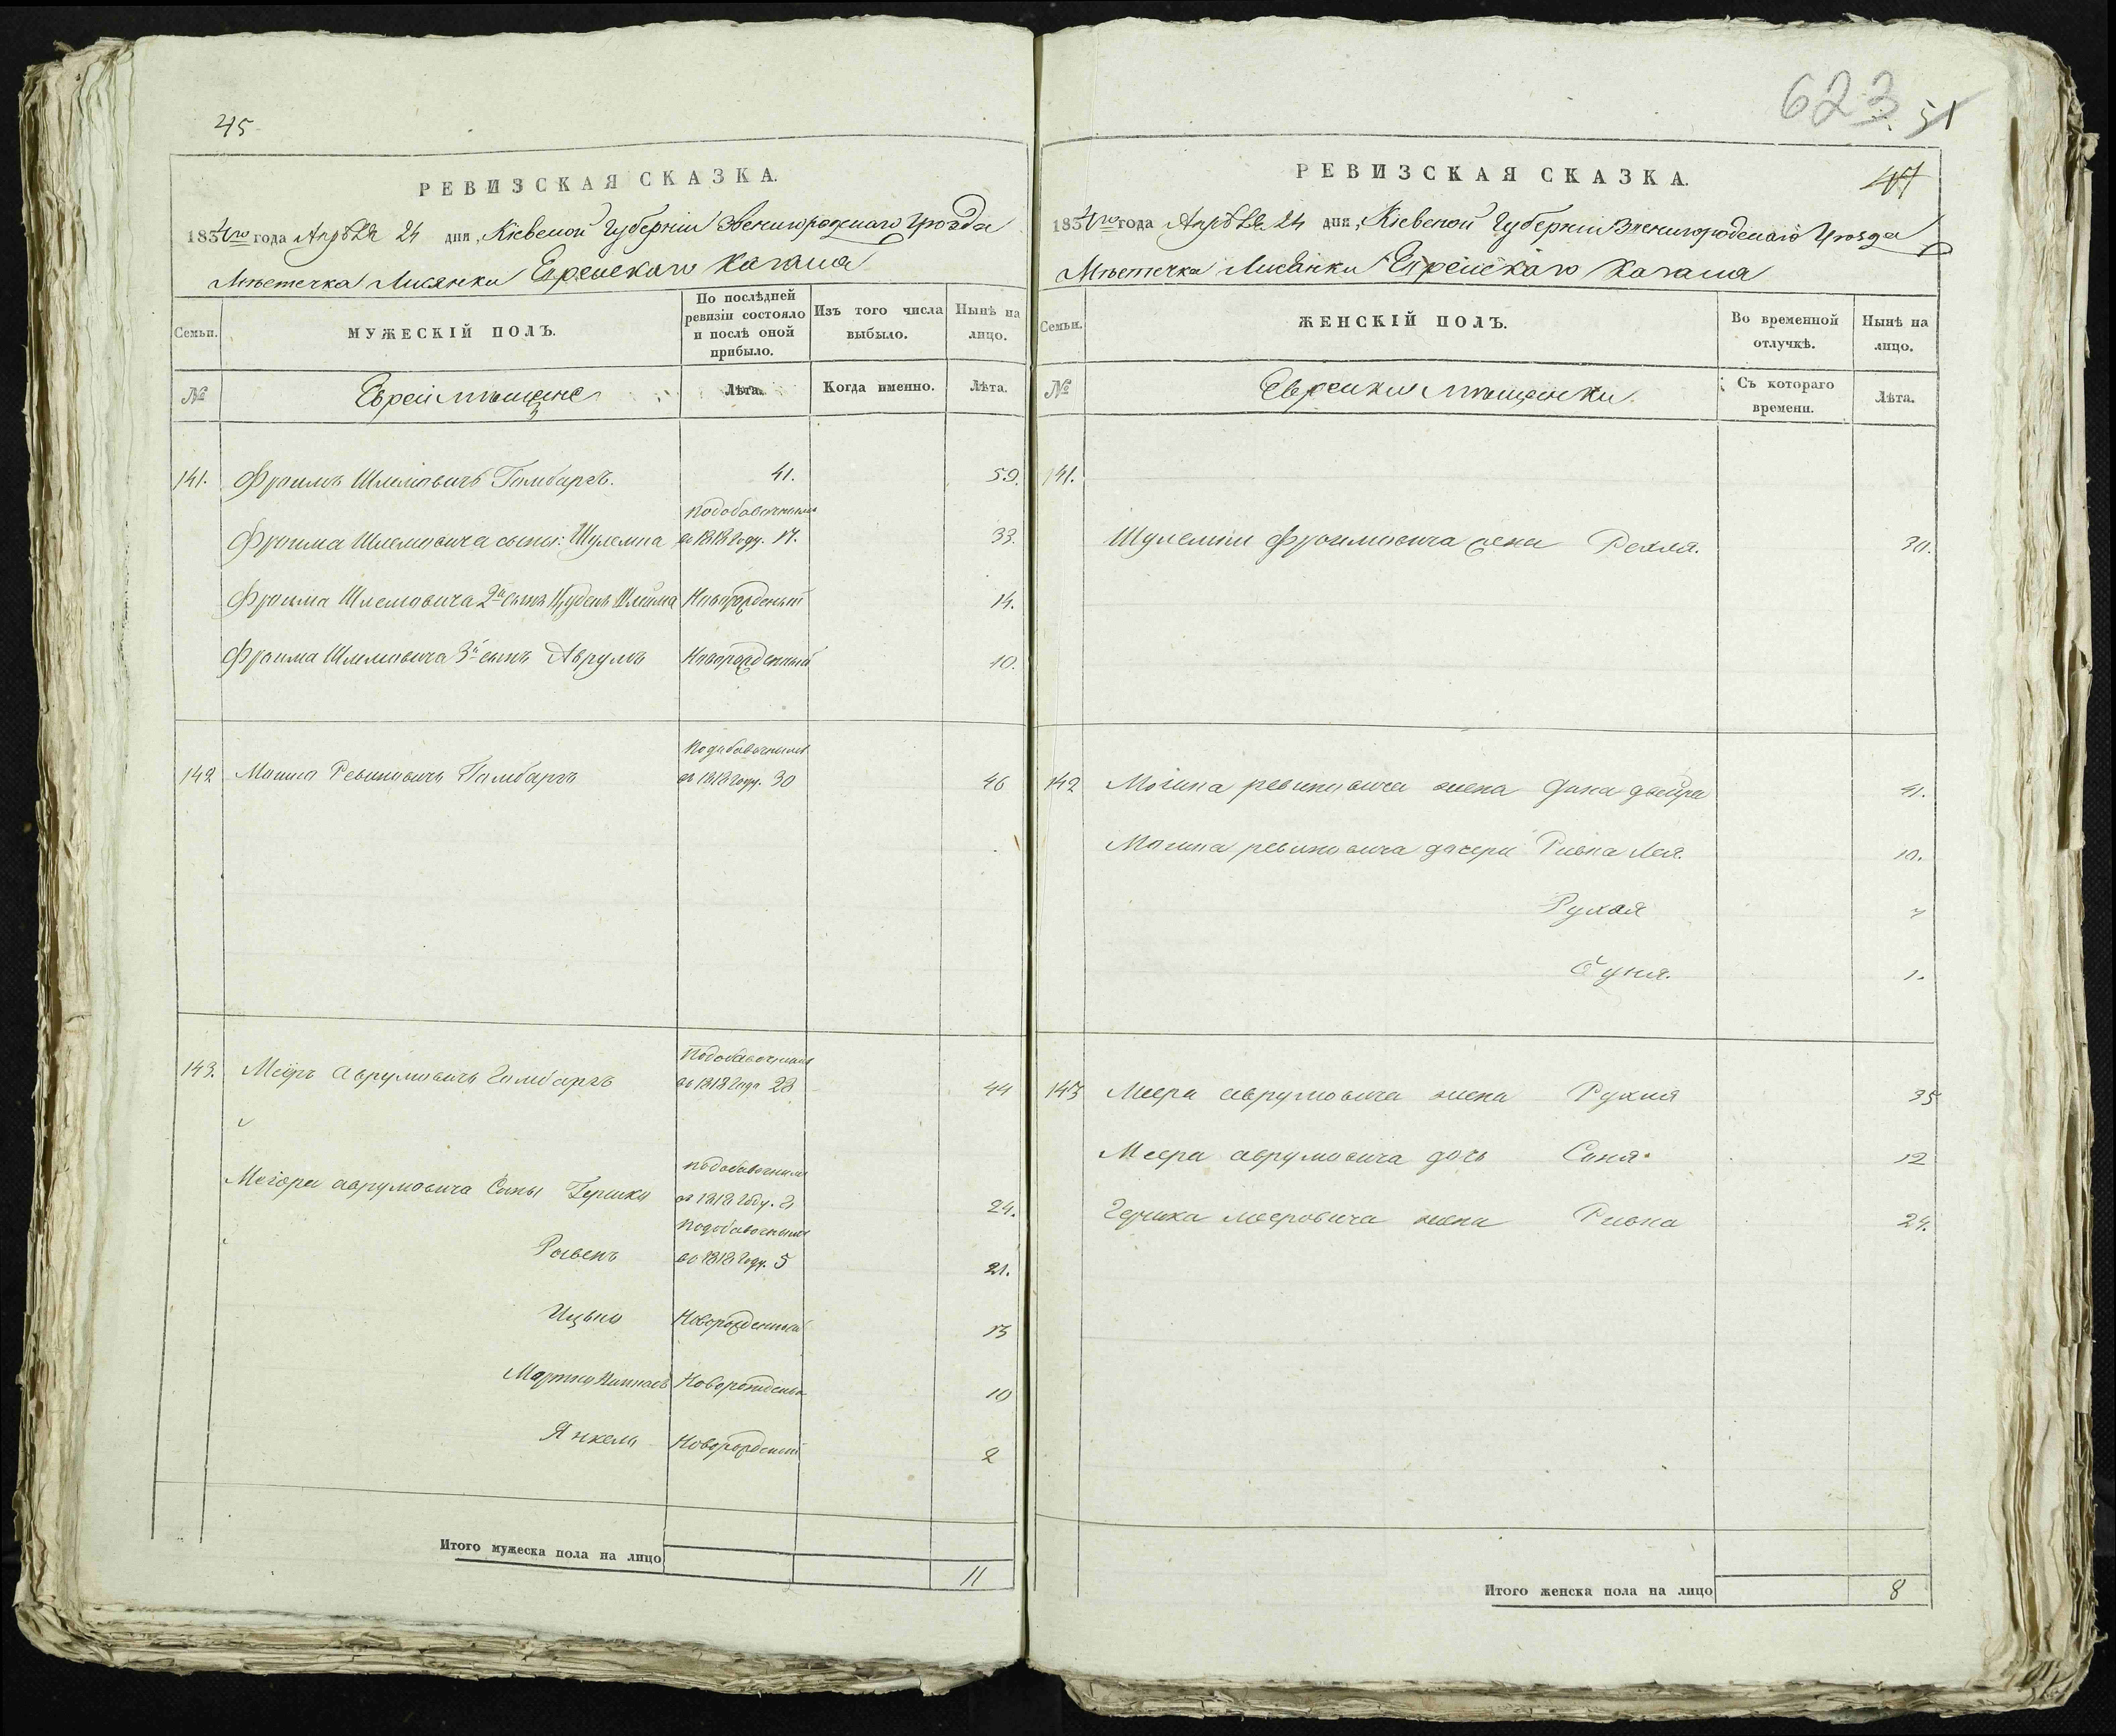 45
РЕВИЗСКАЯ СКАЗКА.
1834го года Апрѣля 24 дня, Кіевской Губерніи Звенигородскаго Уѣзда
Мѣстечка Лисянки Еврейскаго Кагала
Семьи.
МУЖЕСКІЙ ПОЛЪ.
По послѣдней ревизіи состояло и послѣ оной прибыло.
Изъ того числа выбыло.
Нынѣ на лицо.
№
Евреи мѣщане
Лѣта.
Когда именно.
Лѣта.
141. Фроимъ Шлемовичъ Гамбаргъ. 41. 59.
Фроима Шлемовича сыны: Шулемна 17. 33.
въ 1818 году.
Фроима Шлемовича 2й сынъ Шлиома Новорожденный 14.
Фроима Шлемовича 3й сынъ Аврумъ Новорожденный 10.
142 Мошко Ревиновичъ Гамбаргъ въ 1818 году. 30 46
143. Меіръ Аврумовичъ Гамбаргъ въ 1818 года 28 44
Меіора аврумовича Сыны Гершко въ 1818 году. 24.
Рывенъ въ 1818 году. 5 21.
Ицько Новорожденный 13
Новорожденъ 10
Янкель Новорожденный 2
Итого мужеска пола на лицо
11
623
51
47
РЕВИЗСКАЯ СКАЗКА.
1834го года Апрѣля 24 дня, Кіевской Губерніи Звенигородскаго Уѣзда
Мѣстечка Лисянки Еврейскаго Кагала
Семьи.
ЖЕНСКІЙ ПОЛЪ.
Во временной отлучкѣ.
Нынѣ на лицо.
№
Еврейки мѣщанки
Съ котораго времени.
Лѣта.
141.
Шулемны Фроимовича жена Рехля. 30.
142 Мошка ревиновича жена двейра 41.
Мошка ревиновича дочери Ривка Лея. 10.
Рухля 7
1.
143 Меера аврумовича жена Рухля 35
Меера аврумовича дочь Соня 12
Гершка мееровича жена Ривка 24.
Итого женска пола на лицо
8